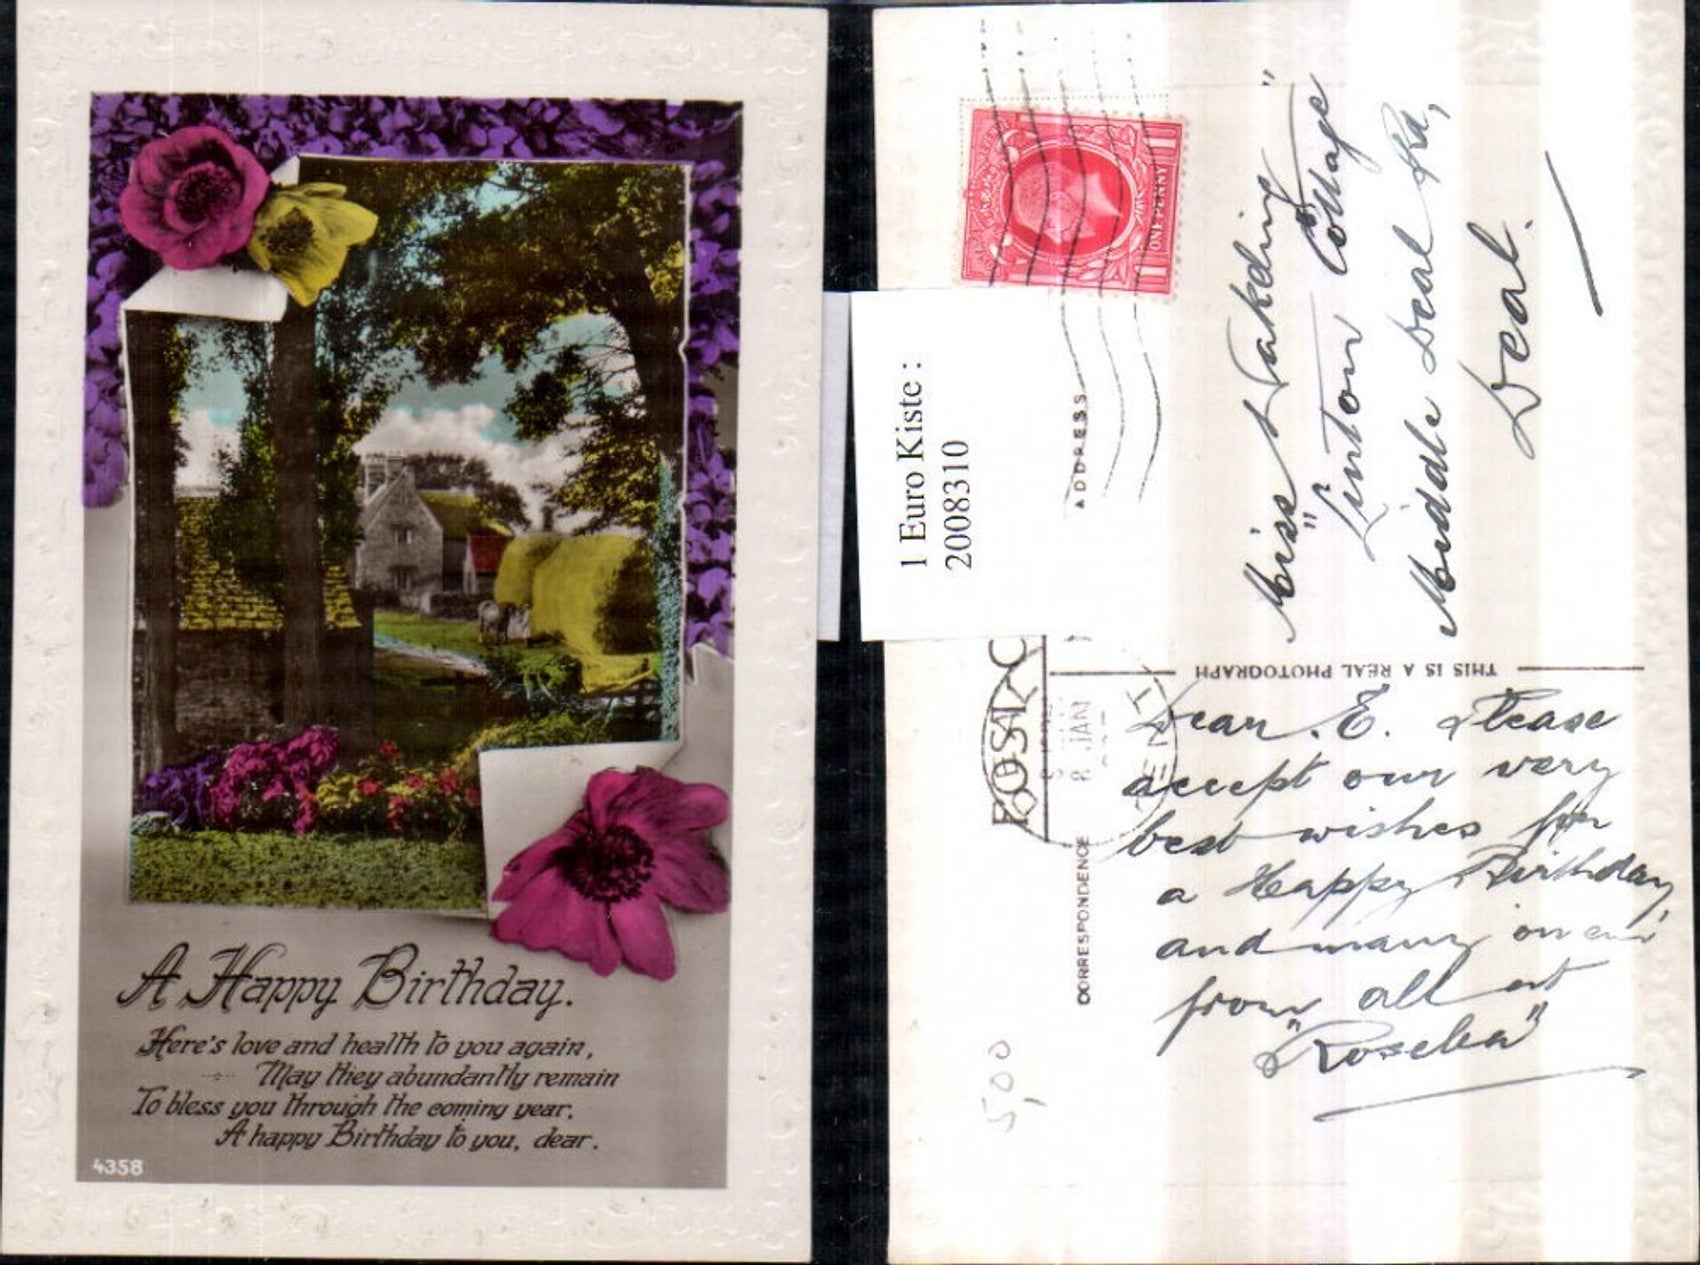 A Happy Birthday.
Here's love and health to you again,
May they abundantly remain
To bless you through the coming year,
A happy Birthday to you, dear.
4358
ONE PENNY
1 Euro Kiste :
2008310
ADDRESS
Miss Hakding
"Linton Cottage"
Middle Deal Rd,
Deal.
THIS IS A REAL PHOTOGRAPH
POST C
8 JAN
CORRESPONDENCE
Dear. E. Please
accept our very
best wishes for
a Happy Birthday,
and many
from all at
"Roselea"
5,00